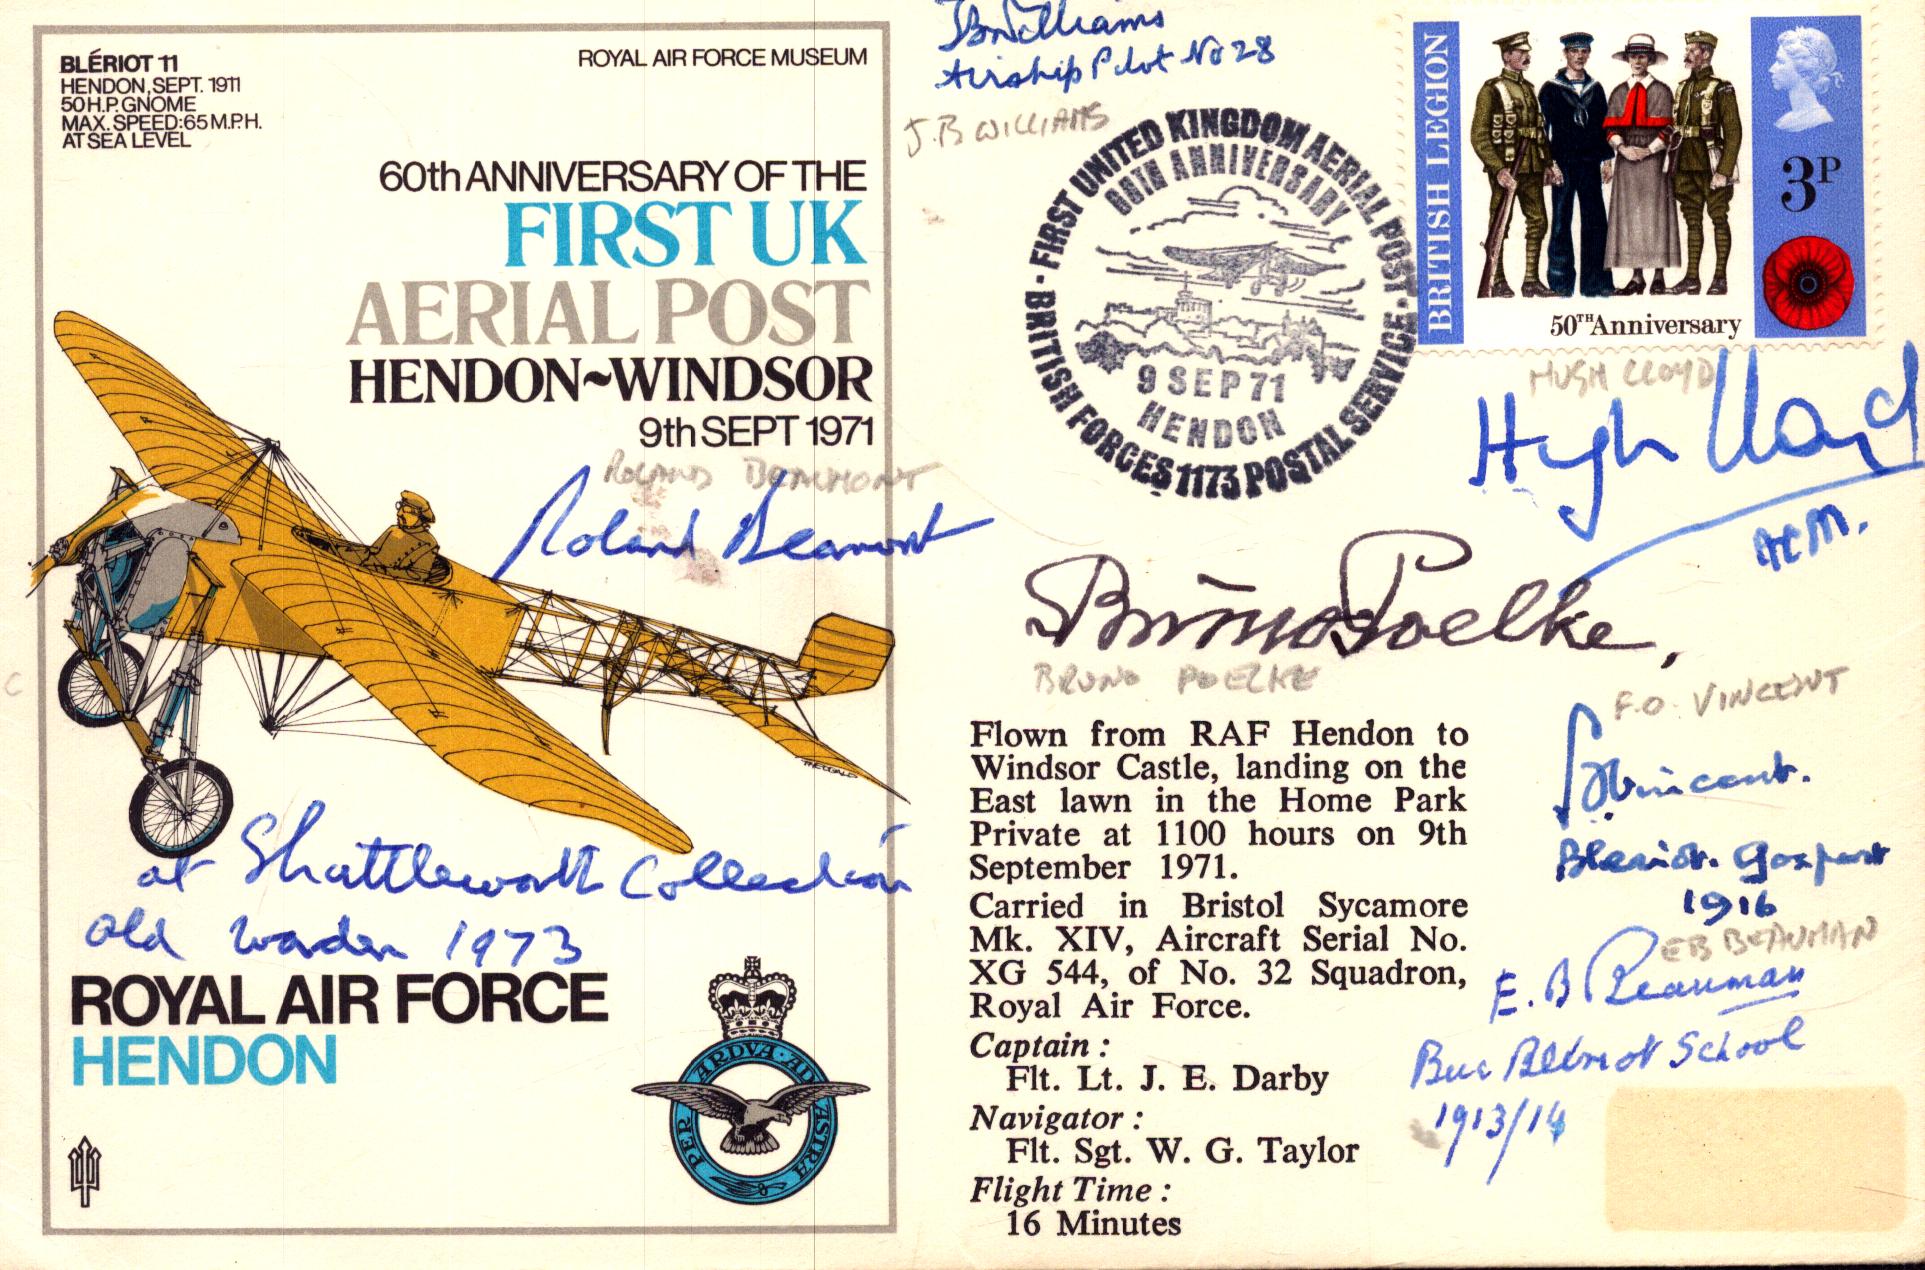 BLÉRIOT 11
HENDON, SEPT. 1911
50 H.P. GNOME
MAX. SPEED: 65 M.P.H.
AT SEA LEVEL
ROYAL AIR FORCE MUSEUM
60th ANNIVERSARY OF THE
FIRST UK
AERIAL POST
HENDON~WINDSOR
9th SEPT 1971
ROLAND BEAMONT
Roland Beamont
at Shuttleworth Collection
Old Warden 1973
ROYAL AIR FORCE
HENDON
PER ARDVA AD ASTRA
C
J B Williams
Airship Pilot No 28
J.B WILLIAMS
· FIRST UNITED KINGDOM AERIAL POST ·
60TH ANNIVERSARY
9 SEP 71
HENDON
BRITISH FORCES 1173 POSTAL SERVICE
BRITISH LEGION
3P
50TH Anniversary
HUGH LLOYD
Hugh Lloyd
ACM.
Bruno Poelke,
BRUNO POELKE
Flown from RAF Hendon to
Windsor Castle, landing on the
East lawn in the Home Park
Private at 1100 hours on 9th
September 1971.
Carried in Bristol Sycamore
Mk. XIV, Aircraft Serial No.
XG 544, of No. 32 Squadron,
Royal Air Force.
Captain :
Flt. Lt. J. E. Darby
Navigator :
Flt. Sgt. W. G. Taylor
Flight Time :
16 Minutes
F.O. VINCENT
Vincent.
Bleriot. Gosport
1916
EB BEAUMAN
E. B Beauman
Buc Bleriot School
1913/14